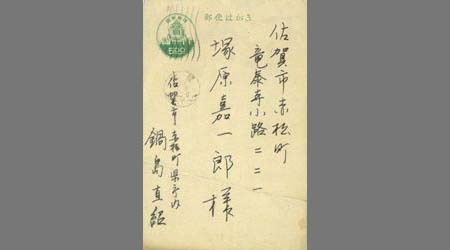 郵便はがき
佐賀市赤松町
竜泰寺小路二二一
塚原嘉一郎様
佐賀市赤松町県庁内
鍋島直紹